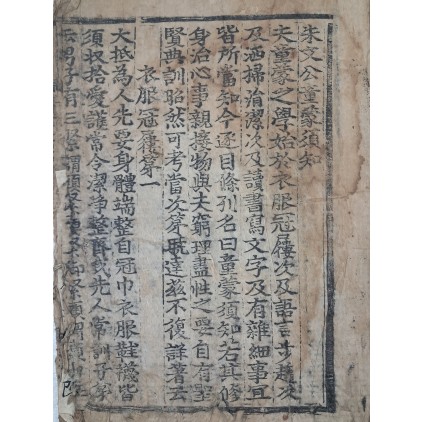 朱文公童蒙須知
夫童蒙之學始於衣服冠屨次及語言步趍次
及洒掃涓潔次及讀書寫文字及有雜細事宜
皆所當知今逐目條列名曰童蒙須知若其修
身治心事親接物與夫窮理盡性之要自有聖
賢典訓昭然可考當次第曉達兹不復詳著云
衣服冠屨第一
大抵為人先要身體端整自冠巾衣服鞋襪皆
須収拾愛護常令潔净整齊我先人常訓子弟
云男子有三緊謂頭緊腰緊脚緊頭謂頭巾